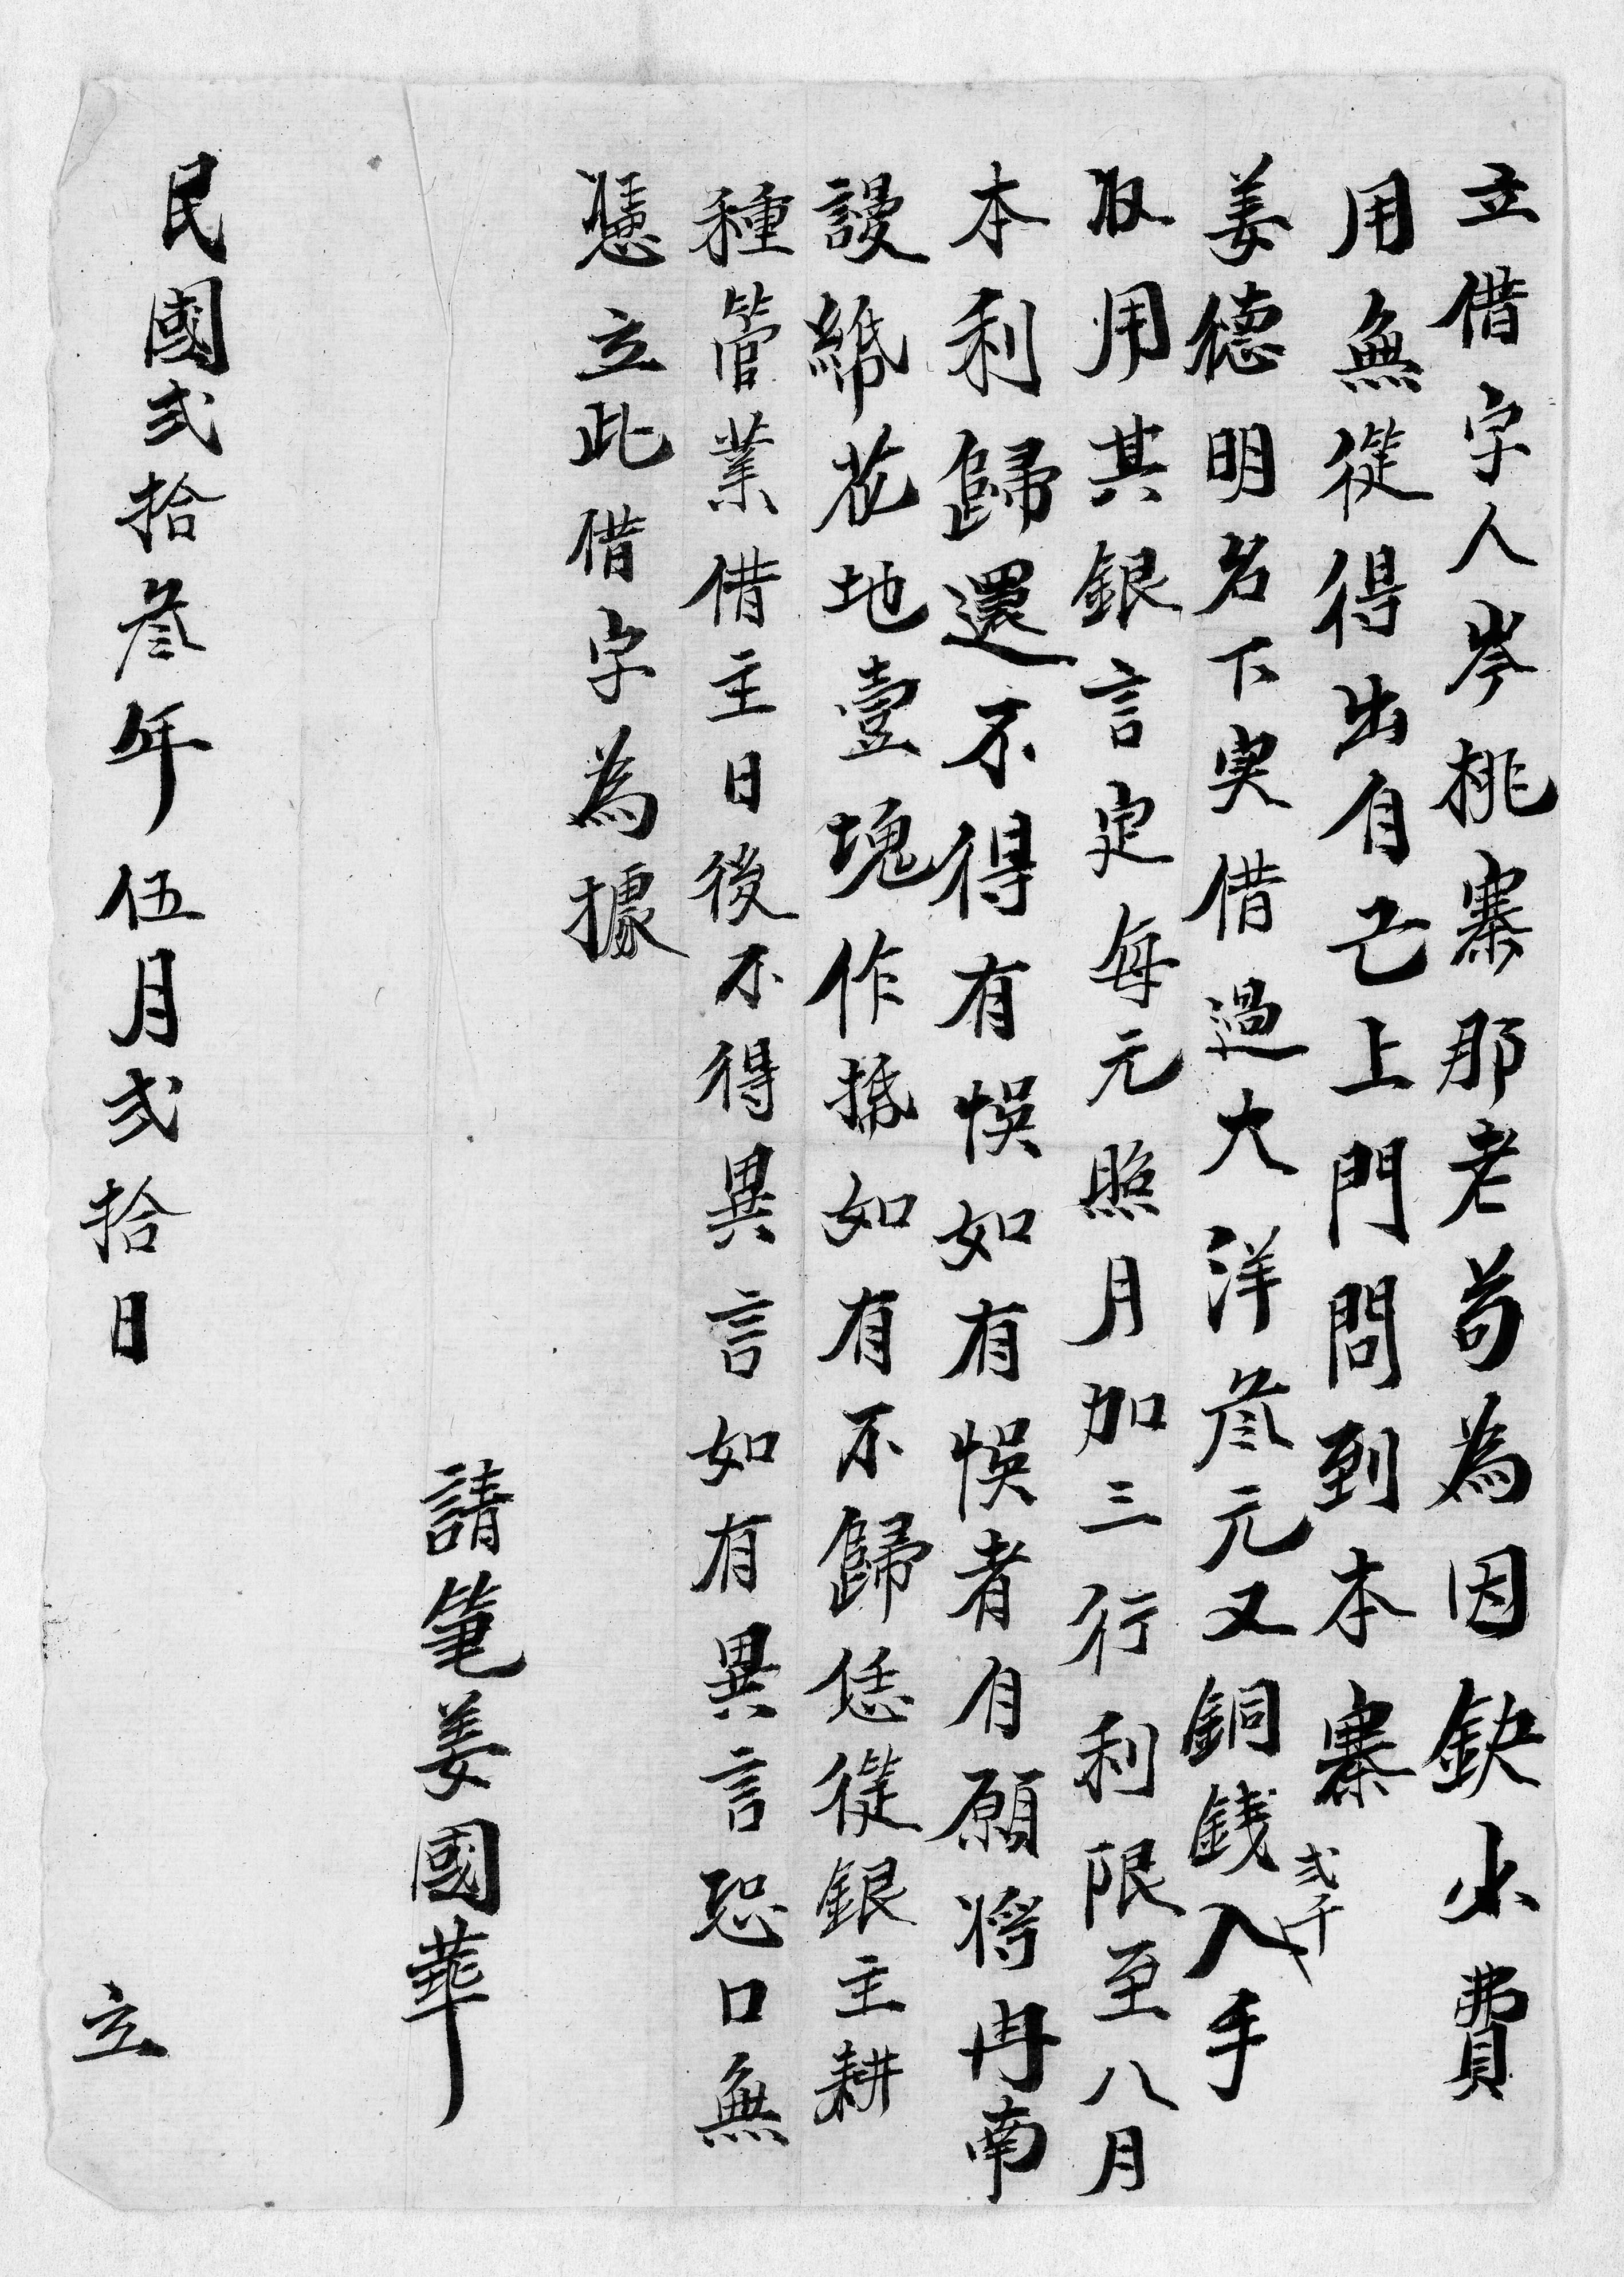 立借字人岑桃寨那老苟為因缺少費
用無從得出自己上門問到本寨
姜德明名下実借過大洋叁元又銅錢弍千入手
收用其銀言定每元照月加三行利限至八月
本利歸還不得有悞如有悞者自願將冉南
謾綿花地壹塊作抵如有不歸恁從銀主耕
種管業借主日後不得異言如有異言恐口無
憑立此借字為據
請筆姜國華
民國弍拾叁年伍月弍拾日 立